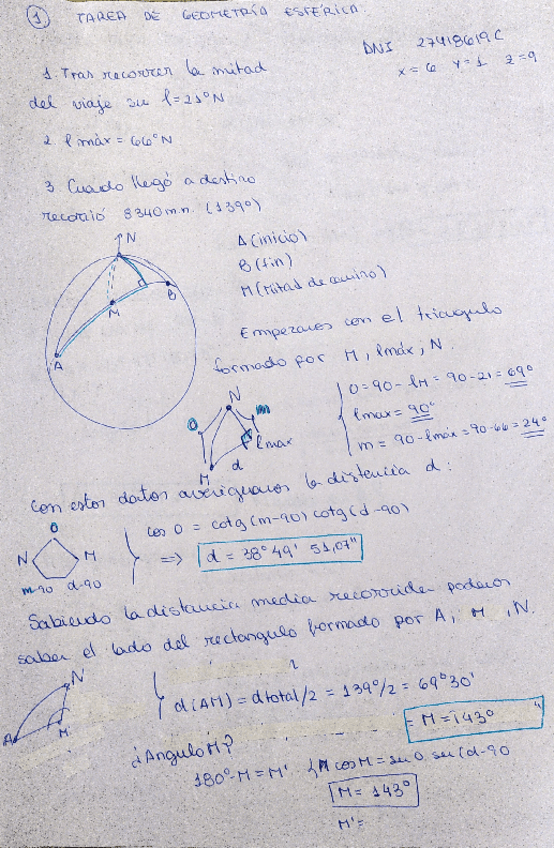 ① TAREA DE GEOMETRÍA ESFÉRICA.
DNI 27418619C
X=6 Y=1 Z=9
1. Tras recorrer la mitad
del viaje su l=21°N
2. l máx = 66°N
3 Cuando llegó a destino
recorrió 8340 m.n. (139°)
N
M
B
A
A (inicio)
B (fin)
M (Mitad de camino)
Empezamos con el triangulo
formado por M, lmáx, N.
N
O
m
lmax
d
M
O = 90 - lM = 90-21 = 69°
lmax = 90°
m = 90 - lmáx = 90-66 = 24°
Con estos datos averiguamos la distancia d:
O
N
M
m-90 d-90
cos O = cotg(m-90) cotg(d-90)
=> d = 38° 49' 51,07"
Sabiendo la distancia media recorrida podemos
saber el lado del rectangulo formado por A, M, N.
N
A
M'
d(AM) = dtotal/2 = 139°/2 = 69°30'
= M = 143° "
¿Angulo M?
180°-M = M' cos M = sen O sen (d-90
M = 143°
M' =